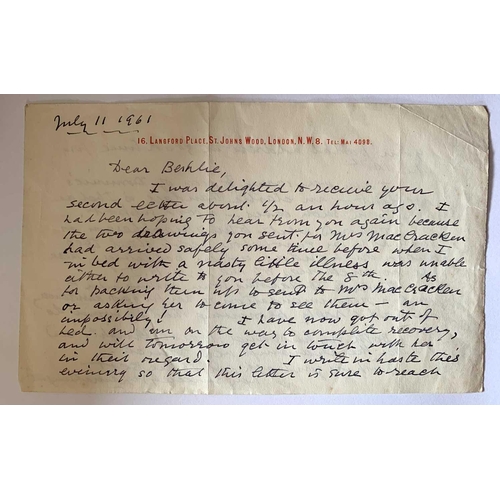 July 11 1961
16, LANGFORD PLACE, ST. JOHNS WOOD, LONDON, N.W.8. TEL: MAI 4088.
Dear Beshlie,
I was delighted to receive your
second letter about 1/2 an hour ago. I
had been hoping to hear from you again because
the two drawings you sent for Mrs MacCracken
had arrived safely some time before when I
in bed with a nasty little illness was unable
either to write to you before the 5th. As
for packing them up to send to Mrs MacCracken
or asking her to come to see them — an
impossibily!  I have now got out of
bed and am on the way to complete recovery,
and will tomorrow get in touch with her
in their regard.  I write in haste this
evening so that this letter is sure to reach